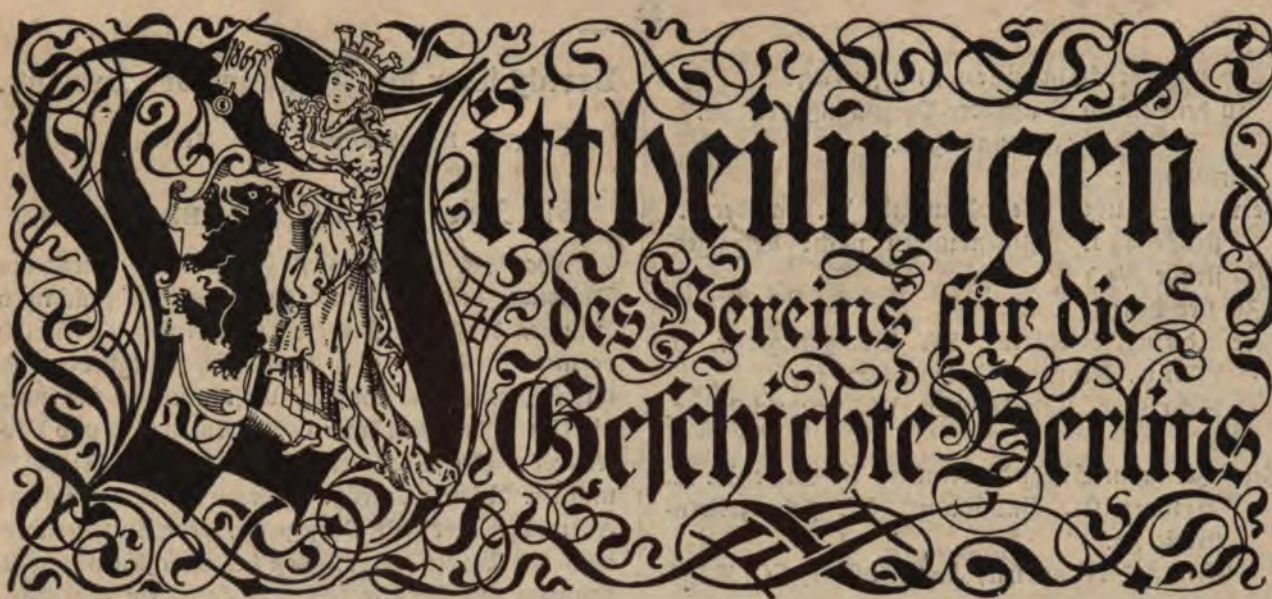 1865
Mittheilungen
des Vereins für die
Geschichte Berlins